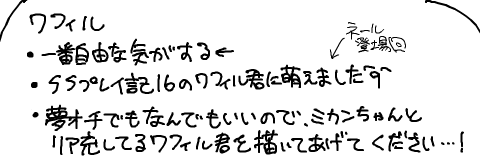 ワフィル
・一番自由な気がする←
ネール
登場回
・SSプレイ記16のワフィル君に萌えました^q^
・夢オチでもなんでもいいので、ミカンちゃんと
リア充してるワフィル君を描いてあげてください…!